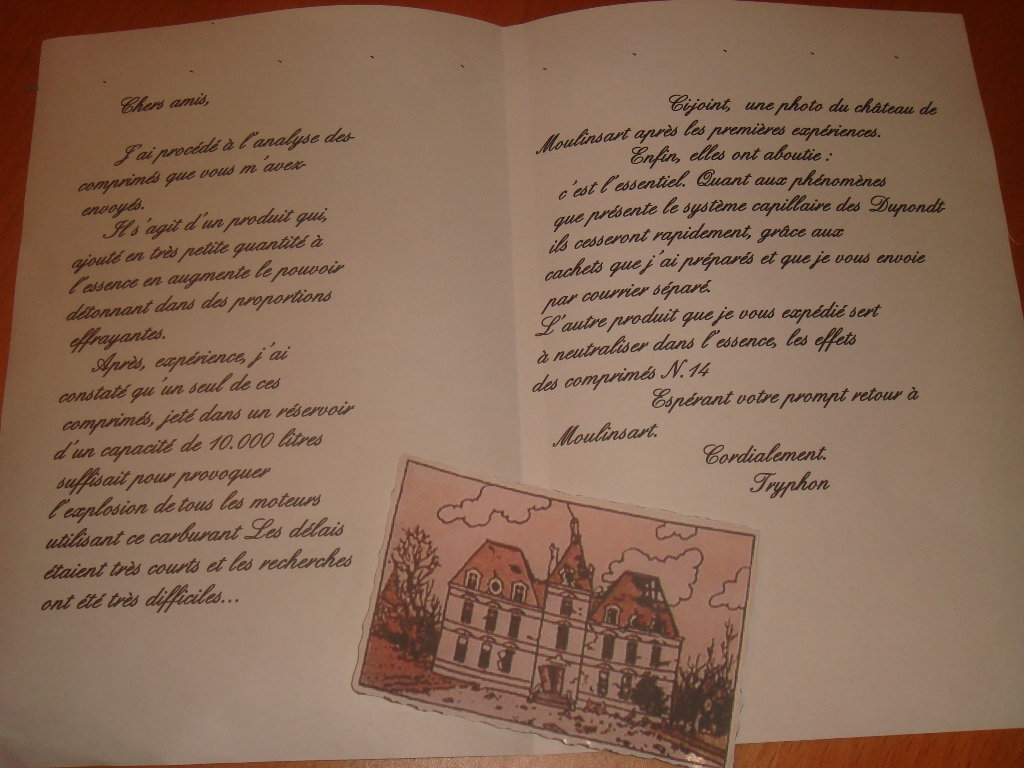 Chers amis,
J'ai procédé à l'analyse des
comprimés que vous m'avez
envoyés.
Il s'agit d'un produit qui,
ajouté en très petite quantité à
l'essence en augmente le pouvoir
détonnant dans des proportions
effrayantes.
Après, expérience, j'ai
constaté qu'un seul de ces
comprimés, jeté dans un réservoir
d'un capacité de 10.000 litres
suffisait pour provoquer
l'explosion de tous les moteurs
utilisant ce carburant Les délais
étaient très courts et les recherches
ont été très difficiles...
Cijoint, une photo du château de
Moulinsart après les premières expériences.
Enfin, elles ont aboutie :
c'est l'essentiel. Quant aux phénomènes
que présente le système capillaire des Dupondt
ils cesseront rapidement, grâce aux
cachets que j'ai préparés et que je vous envoie
par courrier séparé.
L'autre produit que je vous expédié sert
à neutraliser dans l'essence, les effets
des comprimés N.14
Espérant votre prompt retour à
Moulinsart.
Cordialement.
Tryphon